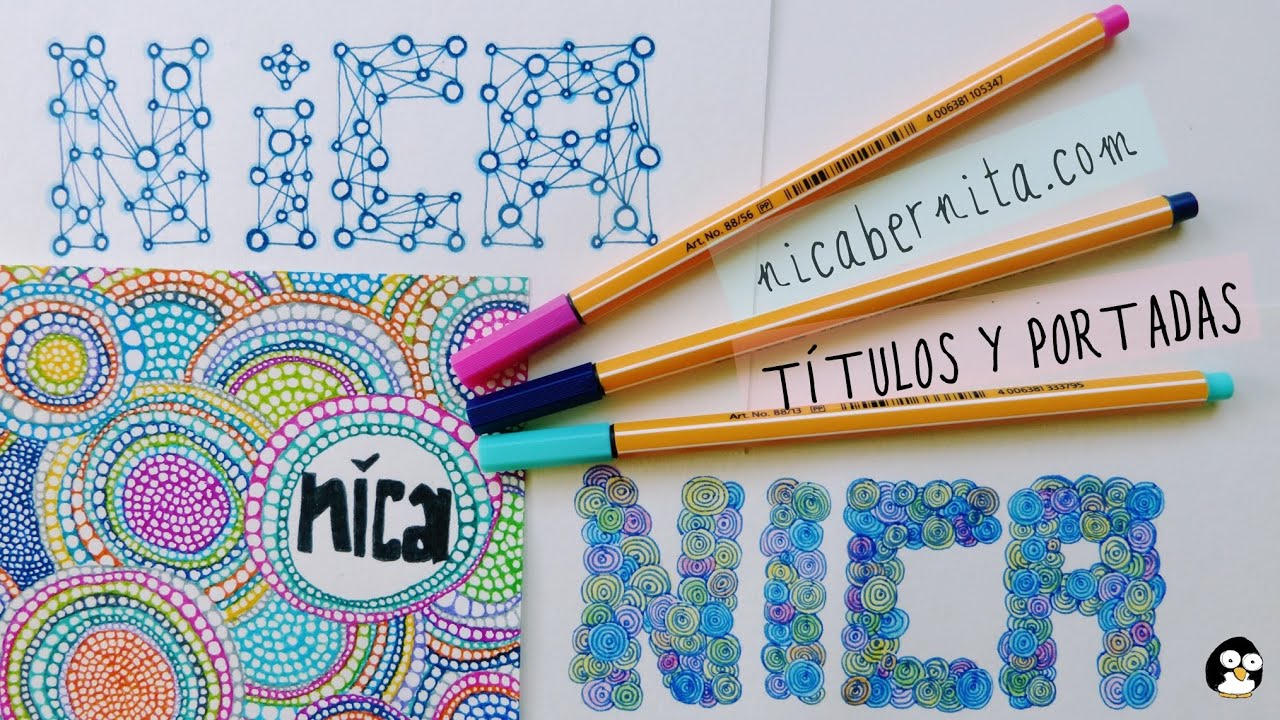 NiCA
Art. No. 88/56 PP 4 006381 105347
nicabernita.com
TÍTULOS Y PORTADAS
Art. No. 88/13 PP 4 006381 333795
nica
NICA